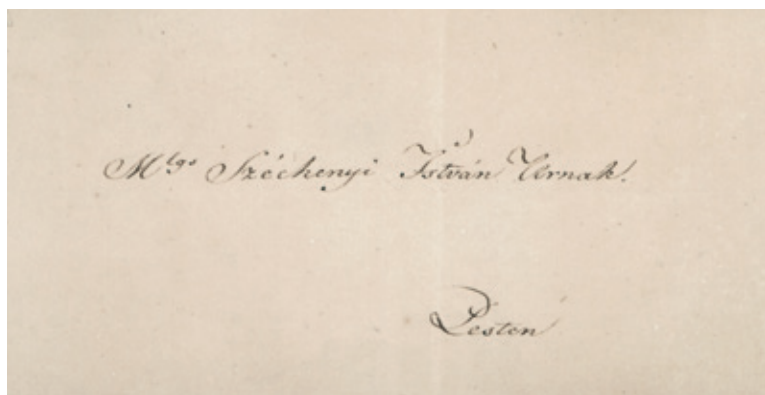 Mlgs Széchenyi István Úrnak.
Pesten